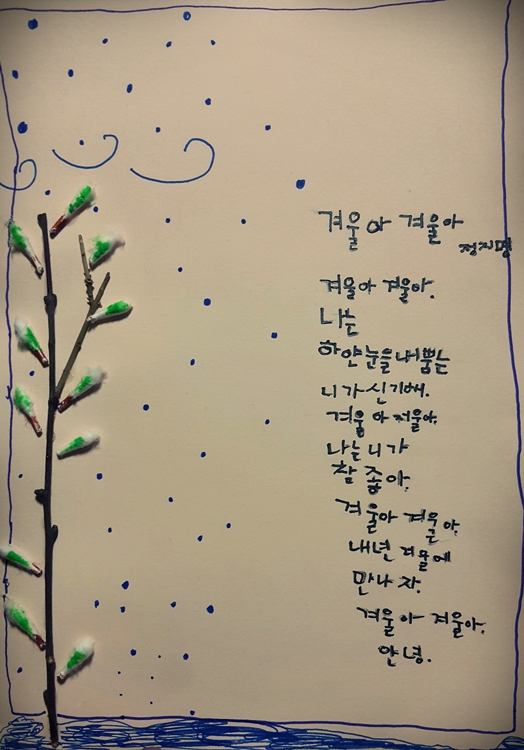 겨울아 겨울아
정지명
겨울아 겨울아.
나는
하얀눈을내뿜는
니가신기해.
겨울아 겨울아.
나는니가
참 좋아.
겨울아 겨울아.
내년 겨울에
만나자.
겨울아 겨울아.
안녕.